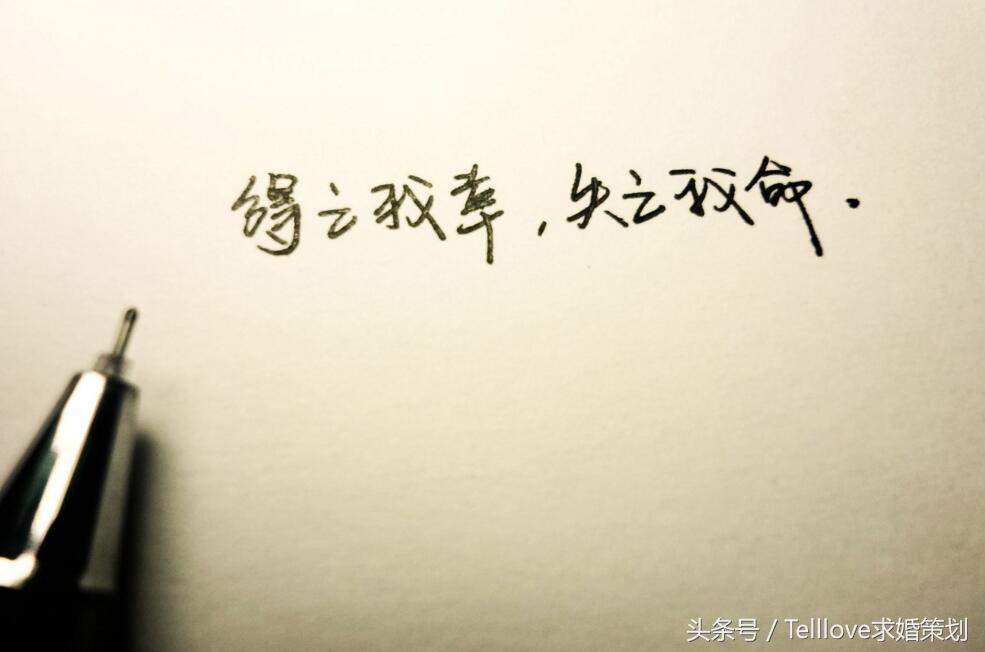 得之我幸,失之我命.
头条号 / Telllove求婚策划